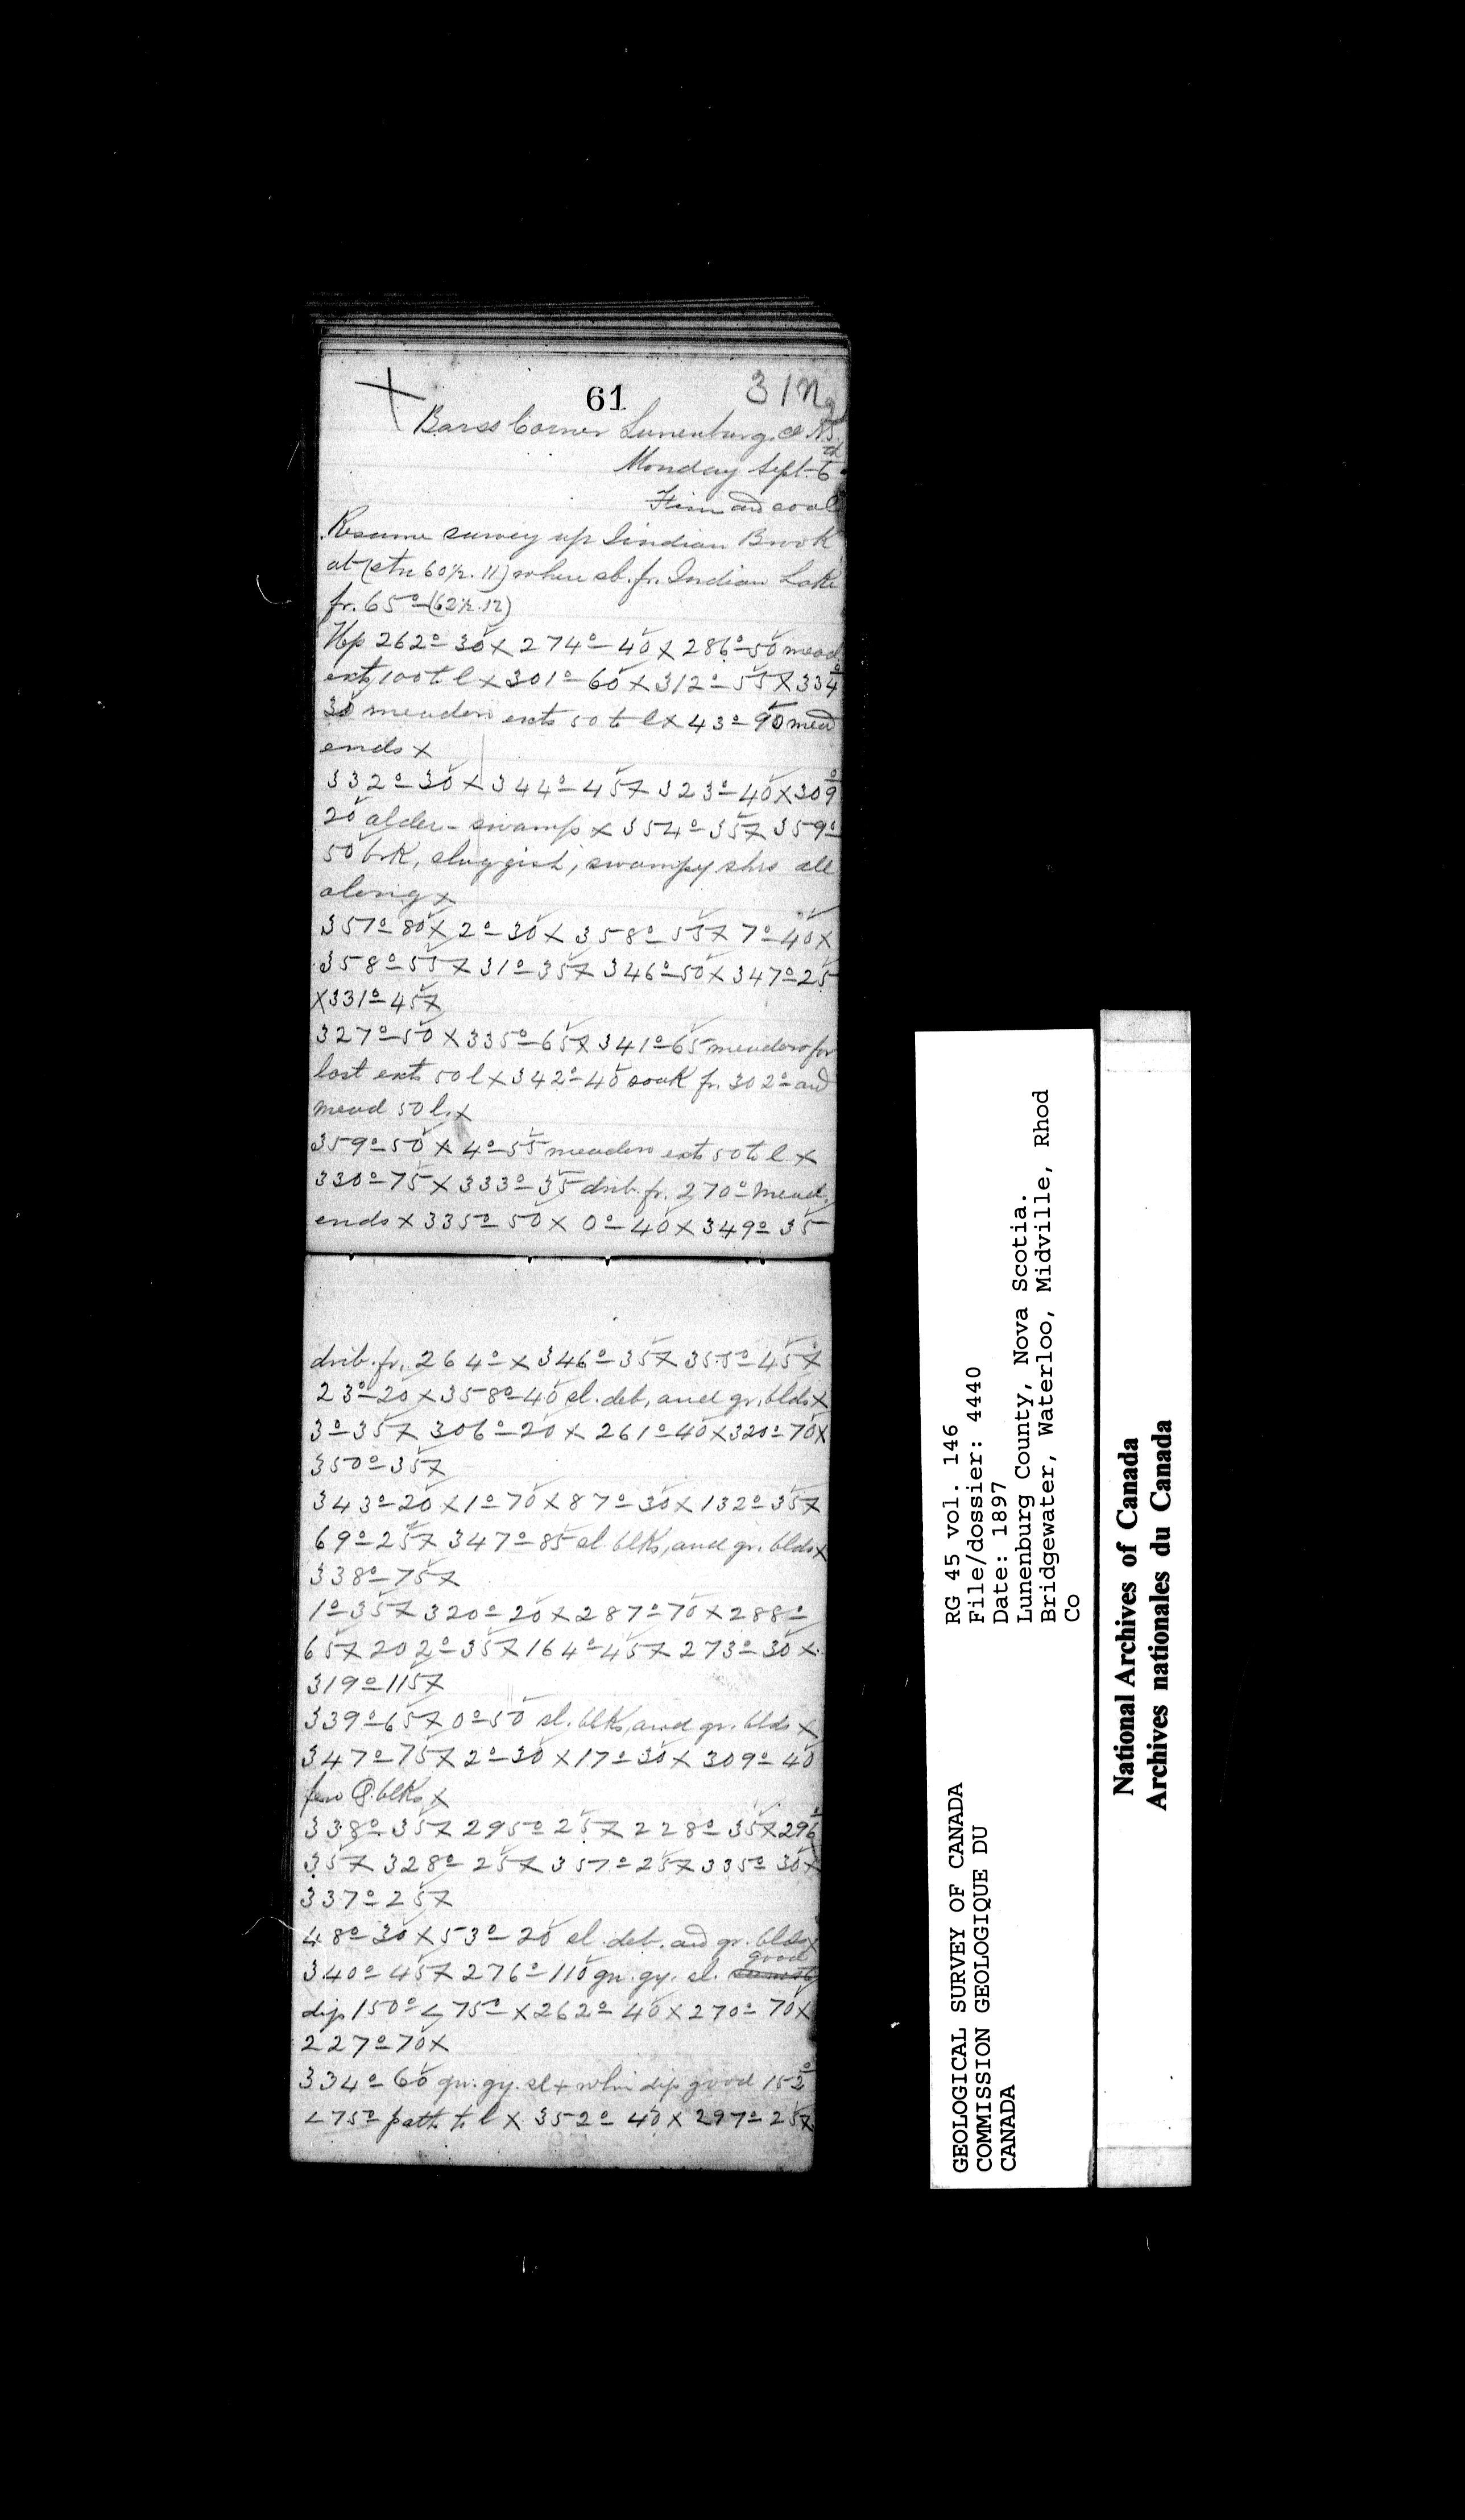 61
Barss Corner Lunenburg Co N.S.
Monday Sept. 6th
Fine and cool
Resume survey up Indian Brook
at (stn 60 p. 11) where sb. fr. Indian Lake
fr. 65° (62 p. 12)
Up 262°-30 X 274°-40 X 286°-50 mead
exts 100 t l X 301°-60 X 312°-55 X 334°
30 meadow exts 50 t l X 43°-90 mead
ends X
332°-30 X 344°-45 X 323°-40 X 309°
20 alder-swamp X 354°-35 X 359°-
50 brk, sluggish, swampy shrs all
along X
357°-80 X 2°-30 X 358°-55 X 7°-40 X
358°-55 X 31°-35 X 346°-50 X 347°-25
X 331°-45 X
327°-50 X 335°-65 X 341°-65 meadow for
last exts 50 l X 342°-40 soak fr. 302° and
mead 50 l. X
359°-50 X 4°-55 meadow exts 50 to l X
330°-75 X 333°-35 drib. fr. 270° mead.
ends X 335°-50 X 0°-40 X 349°-35
drib. fr. 264° X 346°-35 X 355°-45 X
23°-20 X 358°-40 sl. deb, and gr. blds X
3°-35 X 306°-20 X 261°-40 X 320°-70 X
350°-35 X
343°-20 X 1°-70 X 87°-30 X 132°-35 X
69°-25 X 347°-85 sl. blks, and gr. blds X
338°-75 X
1°-35 X 320°-20 X 287°-70 X 288°-
65 X 202°-35 X 164°-45 X 273°-30 X
319°-115 X
339°-65 X 0°-50 sl. blks, and gr. blds X
347°-75 X 2°-30 X 17°-30 X 309°-40
few Q. blks X
338°-35 X 295°-25 X 228°-35 X 296°
35 X 328°-25 X 357°-25 X 335°-30 X
337°-25 X
48°-30 X 53°-20 sl. deb. and gr. blds X
340°-45 X 276°-110 gn. gy. sl. good
dip 150° < 75° X 262°-40 X 270°-70 X
227°-70 X
334°-60 gn. gy. sl + whin dip good 152°
< 75° path to l X 352°-40 X 297°-25 X
RG 45 vol. 146
File/dossier: 4440
Date: 1897
Lunenburg County, Nova Scotia.
Bridgewater, Waterloo, Midville, Rhod
Co
GEOLOGICAL SURVEY OF CANADA
COMMISSION GEOLOGIQUE DU
CANADA
National Archives of Canada
Archives nationales du Canada